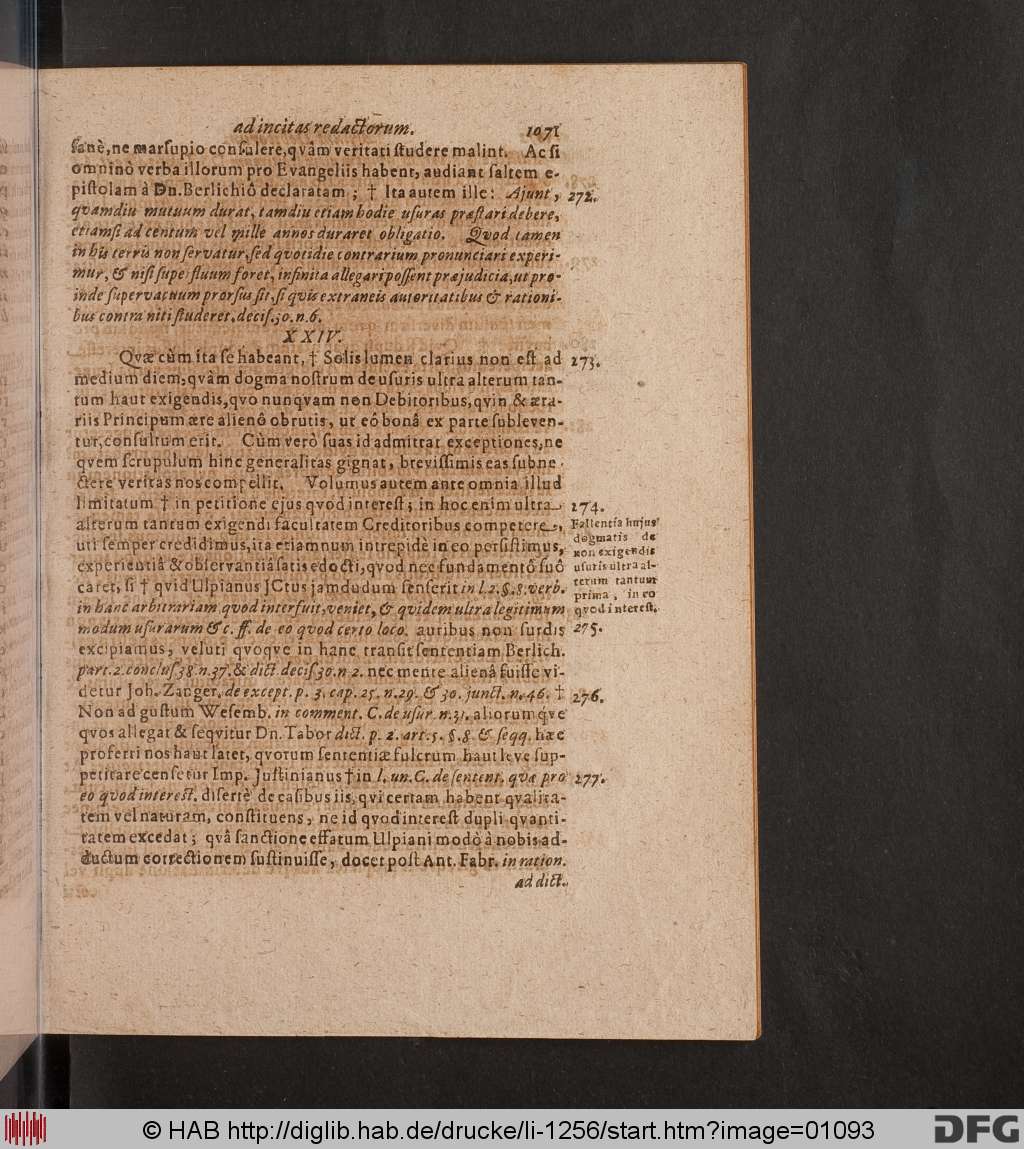 ad incitas redactorum. 1071
sanè, ne marsupio consulere, qvâm veritati studere malint. Ac si
omninò verba illorum pro Evangeliis habent, audiant saltem e-
pistolam à Dn. Berlichiô declaratam; † Ita autem ille: Ajunt, 272.
qvamdiu mutuum durat, tamdiu etiam hodie usuras præstari debere,
etiamsi ad centum vel mille annos duraret obligatio. Qvod tamen
in his terris non servatur, sed qvotidie contrarium pronunciari experi-
mur, & nisi superfluum foret, infinita allegari possent præjudicia, ut pro-
inde supervacuum prorsus sit, si qvis extraneis autoritatibus & rationi-
bus contra niti studeret. decis. 30. n. 6.
XXIV.
Qvæ cùm ita se habeant, † Solis lumen clarius non est ad 273.
medium diem, qvàm dogma nostrum de usuris ultra alterum tan-
tum haut exigendis, qvo nunqvam non Debitoribus, qvin & æra-
riis Principum ære alienô obrutis, ut eô bonâ ex parte subleven-
tur, consultum erit. Cùm verò suas id admittat exceptiones, ne
qvem scrupulum hinc generalitas gignat, brevissimis eas subne-
ctere veritas nos compellit. Volumus autem ante omnia illud
limitatum † in petitione ejus qvod interest; in hoc enim ultra 274.
alterum tantum exigendi facultatem Creditoribus competere,
uti semper credidimus, ita etiamnum intrepidè in eo persistimus,
experientiâ & observantiâ satis edocti, qvod nec fundamentô suô
caret, si † qvid Ulpianus JCtus jamdudum senserit in l. 2. §. 8. verb.
in hanc arbitrariam, qvod interfuit, veniet, & qvidem ultra legitimum
modum usurarum &c. ff. de eo qvod certo loco. auribus non surdis
excipiamus; veluti qvoqve in hanc transit sententiam Berlich.
part. 2. conclus. 38. n. 37. & dict. decis. 30. n. 2. nec mente alienâ fuisse vi-
detur Joh. Zanger. de except. p. 3. cap. 25. n. 29. & 30. junct. n. 46. †
Non ad gustum Wesemb. in comment. C. de usur. n. 31. aliorumqve
qvos allegat & seqvitur Dn. Tabor dict. p. 2. art. 5. §. 8. & seqq. hæc
proferri nos haut latet, qvorum sententiæ fulcrum haut leve sup-
petitare censetur Imp. Justinianus † in l. un. C. de sentent. qvæ pro 277.
eo qvod interest. disertè de casibus iis, qvi certam habent qvalita-
tem vel naturam, constituens, ne id qvod interest dupli qvanti-
tatem excedat; qvâ sanctione effatum Ulpiani modò à nobis ad-
ductum correctionem sustinuisse, docet post Ant. Fabr. in ration.
ad dict.
Fallentia hujus
dogmatis de
non exigendis
usuris ultra al-
terum tantum
prima, in eo
qvod interest.
275.
276.
© HAB http://diglib.hab.de/drucke/li-1256/start.htm?image=01093
DFG